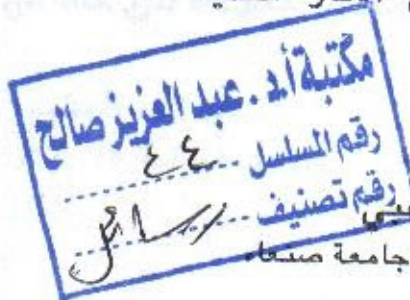 مكتبة أ.د. عبد العزيز صالح
رقم المسلسل ٤٤
رقم تصنيف رسائل
جامعة صنعاء